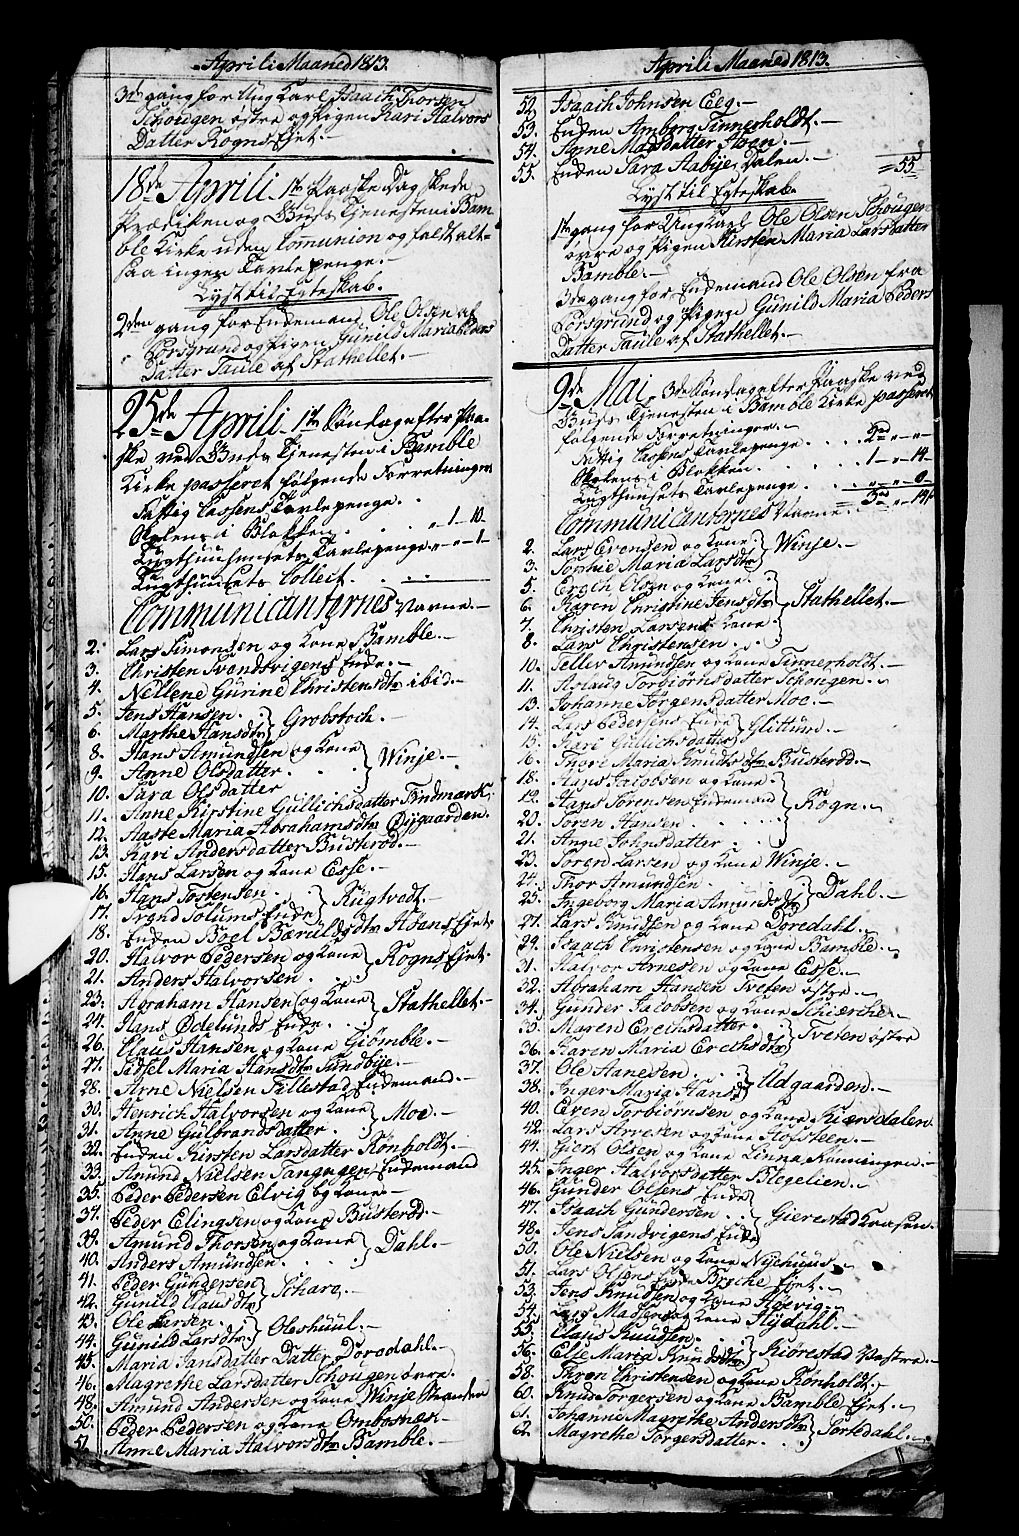 Aprili Maaned 1813.
3de gang for Ung Karl Isaach Thorsen
Schougen østre og Pigen Kari Halvors
Datter Rogns Ejet.
18de Aprili. 1te Paaske Dag skede
Prædiken og Guds Tjenesten i Bam
ble Kirke uden Communion og faldt alt-
saa ingen Tavlepenge.
Lyst til Egteskab.
2den gang for Enkemand Ole Olsen af
Porsgrund og Pigen Gunild Maria Peders
Datter Taule af Stathellet.
25de Aprili. 1te Søndag efter Paa-
ske ved Guds Tjenesten i Bamble
Kirke passeret følgende Forretninger
Fattig Cassens Tavlepenge.
Skolens i Blokken. " 1 - 10.
Tugthuusets Tavlepenge. " " 1.
Tugthusets Collect.
Communicanternes Navne.
2. Lars Simonsen og Kone Bamble.
3. Christen Trondsvigens Enke.
4. Nellene Gurine Christensdtr ibid.
5. Jens Hansen.
6. Marthe Hansdtr } Grobstoch.
8. Hans Amundsen og Kone
9. Anne Olsdatter. } Winje.
10. Sara Olsdatter
11. Anne Kirstine Gullichsdatter Findmark.
12. Aaste Maria Abrahamsdtr Øygaarden.
13. Kari Andersdatter Bustrød.
15. Hans Larsen og Kone Esse.
16. Hans Torstensen.
17. Trond Solums Enke } Rugtvedt.
18. Enken Boel Bærulfsdtr Aaens Ejet.
20. Halvor Pedersen og Kone
21. Anders Halvorsen. } Rogns Ejet.
23. Abraham Hansen og Kone
24. Hans Ødelunds Enke. } Stathellet.
26. Claus Hansen og Kone Giømble.
27. Sidsel Maria Hansdtr Sundbye.
28. Arne Nielsen Tillestad Enkemand.
30. Henrich Halvorsen og Kone
31. Anne Gulbrandsdatter. } Moe.
32. Enken Kirsten Larsdatter Rønholdt.
33. Amund Nielsen Tangvgen Enkemand
35. Peder Pedersen Elvig og Kone.
37. Peder Elingsen og Kone Busterød.
39. Amund Thorsen og Kone
40. Anders Amundsen. } Dahl.
41. Peder Gundersen
42. Gunild Clausdtr } Scharo.
43. Ole Larsen.
44. Gunild Larsdtr. } Oleshuul.
45. Maria Jansdatter Datter Dørdahl.
46. Magrethe Larsdatter Schougen øvre.
48. Amund Andersen og Kone Winje
50. Peder Pedersen og Kone Ombosnæs.
51. Anne Maria Halvorsdtr Bamble.
Aprili Maaned 1813.
52. Isaach Johnsen Eeg.
53. Enken Amborg Tinnerholdt.
54. Anne Madsdatter Aaen.
55. Enken Sara Aabye Dalen. = 55
Lyst til Egteskab.
1te gang for Ung Karl Ole Olsen Schougen
øvre og Pigen Kirsten Maria Larsdatter
Bamble.
3de gang for Enkemand Ole Olsen fra
Porsgrund og Pigen Gunild Maria Peders
Datter Taule af Stathellet.
9de Mai. 3de Søndag efter Paaske ved
Guds Tjenesten i Bamble Kirke passeret
følgende Forretninger.
Fattig Cassens Tavlepenge. 2rd " "
Skolens i Blokken. 1 - 14.
Tugthusets Tavlepenge. " " 8.
Communicanternes Navne.
2. Lars Evensen og Kone
3. Sophie Maria Larsdtr } Winje.
5. Erech Olsen og Kone.
6. Karen Christine Jensdtr
7. Christen Larsens Kone
8. Lars Christensen. } Stathellet.
10. Tellev Amundsen og Kone Tinnerholdt.
11. Aslaug Torbiørnsdatter Schougen.
13. Johanne Jørgensdatter Moe.
14. Lars Pedersens Enke
15. Kari Gullichsdatter } Glittum.
16. Thore Maria Knudsdtr Busterød.
18. Hans Jacobsen og Kone
19. Hans Sørensen Enkemand
20. Søren Hansen
21. Anne Johnsdatter. } Rogn.
23. Søren Larsen og Kone Winje.
24. Thor Amundsen.
25. Ingeborg Maria Amundsdtr } Dahl.
27. Lars Knudsen og Kone Døredahl.
29. Isaach Christensen og Kone Bamble.
31. Halvor Arnesen og Kone Esse.
32. Abraham Hansen Tveten østre.
34. Gunder Jacobsen og Kone Schierche.
35. Maren Erechsdatter.
36. Karen Maria Erechsdtr } Tveten østre
37. Ole Hansen.
38. Inger Maria Hansd } Udgaarden.
40. Even Torbiørnsen og Kone Kiærsdalen
42. Lars Arvesen og Kone Hofsteen.
44. Giert Olsen og Kone Linna, Rønningen.
45. Inger Halvorsdatter Blegelien.
46. Gunder Olsens Enke
47. Isaach Gundersen. } Gierestad
48. Jens Sandvigens Enke
50. Ole Nielsen og Kone Nyehuus.
51. Lars Olsens Enke Birche Ejet.
53. Jens Knudsen og Kone Aasvig.
54. Lars Madsen og Kone Flydahl.
55. Claus Knudsen.
56. Elje Maria Knudsdtr } Kiørestad Vestre.
58. Thron Christensen og Kone Rønholdt.
60. Knud Torgersen og Kone Bamble Ejet.
61. Johanne Magrethe Andersdtr
62. Magrethe Torgersdatter. } Sortedahl.